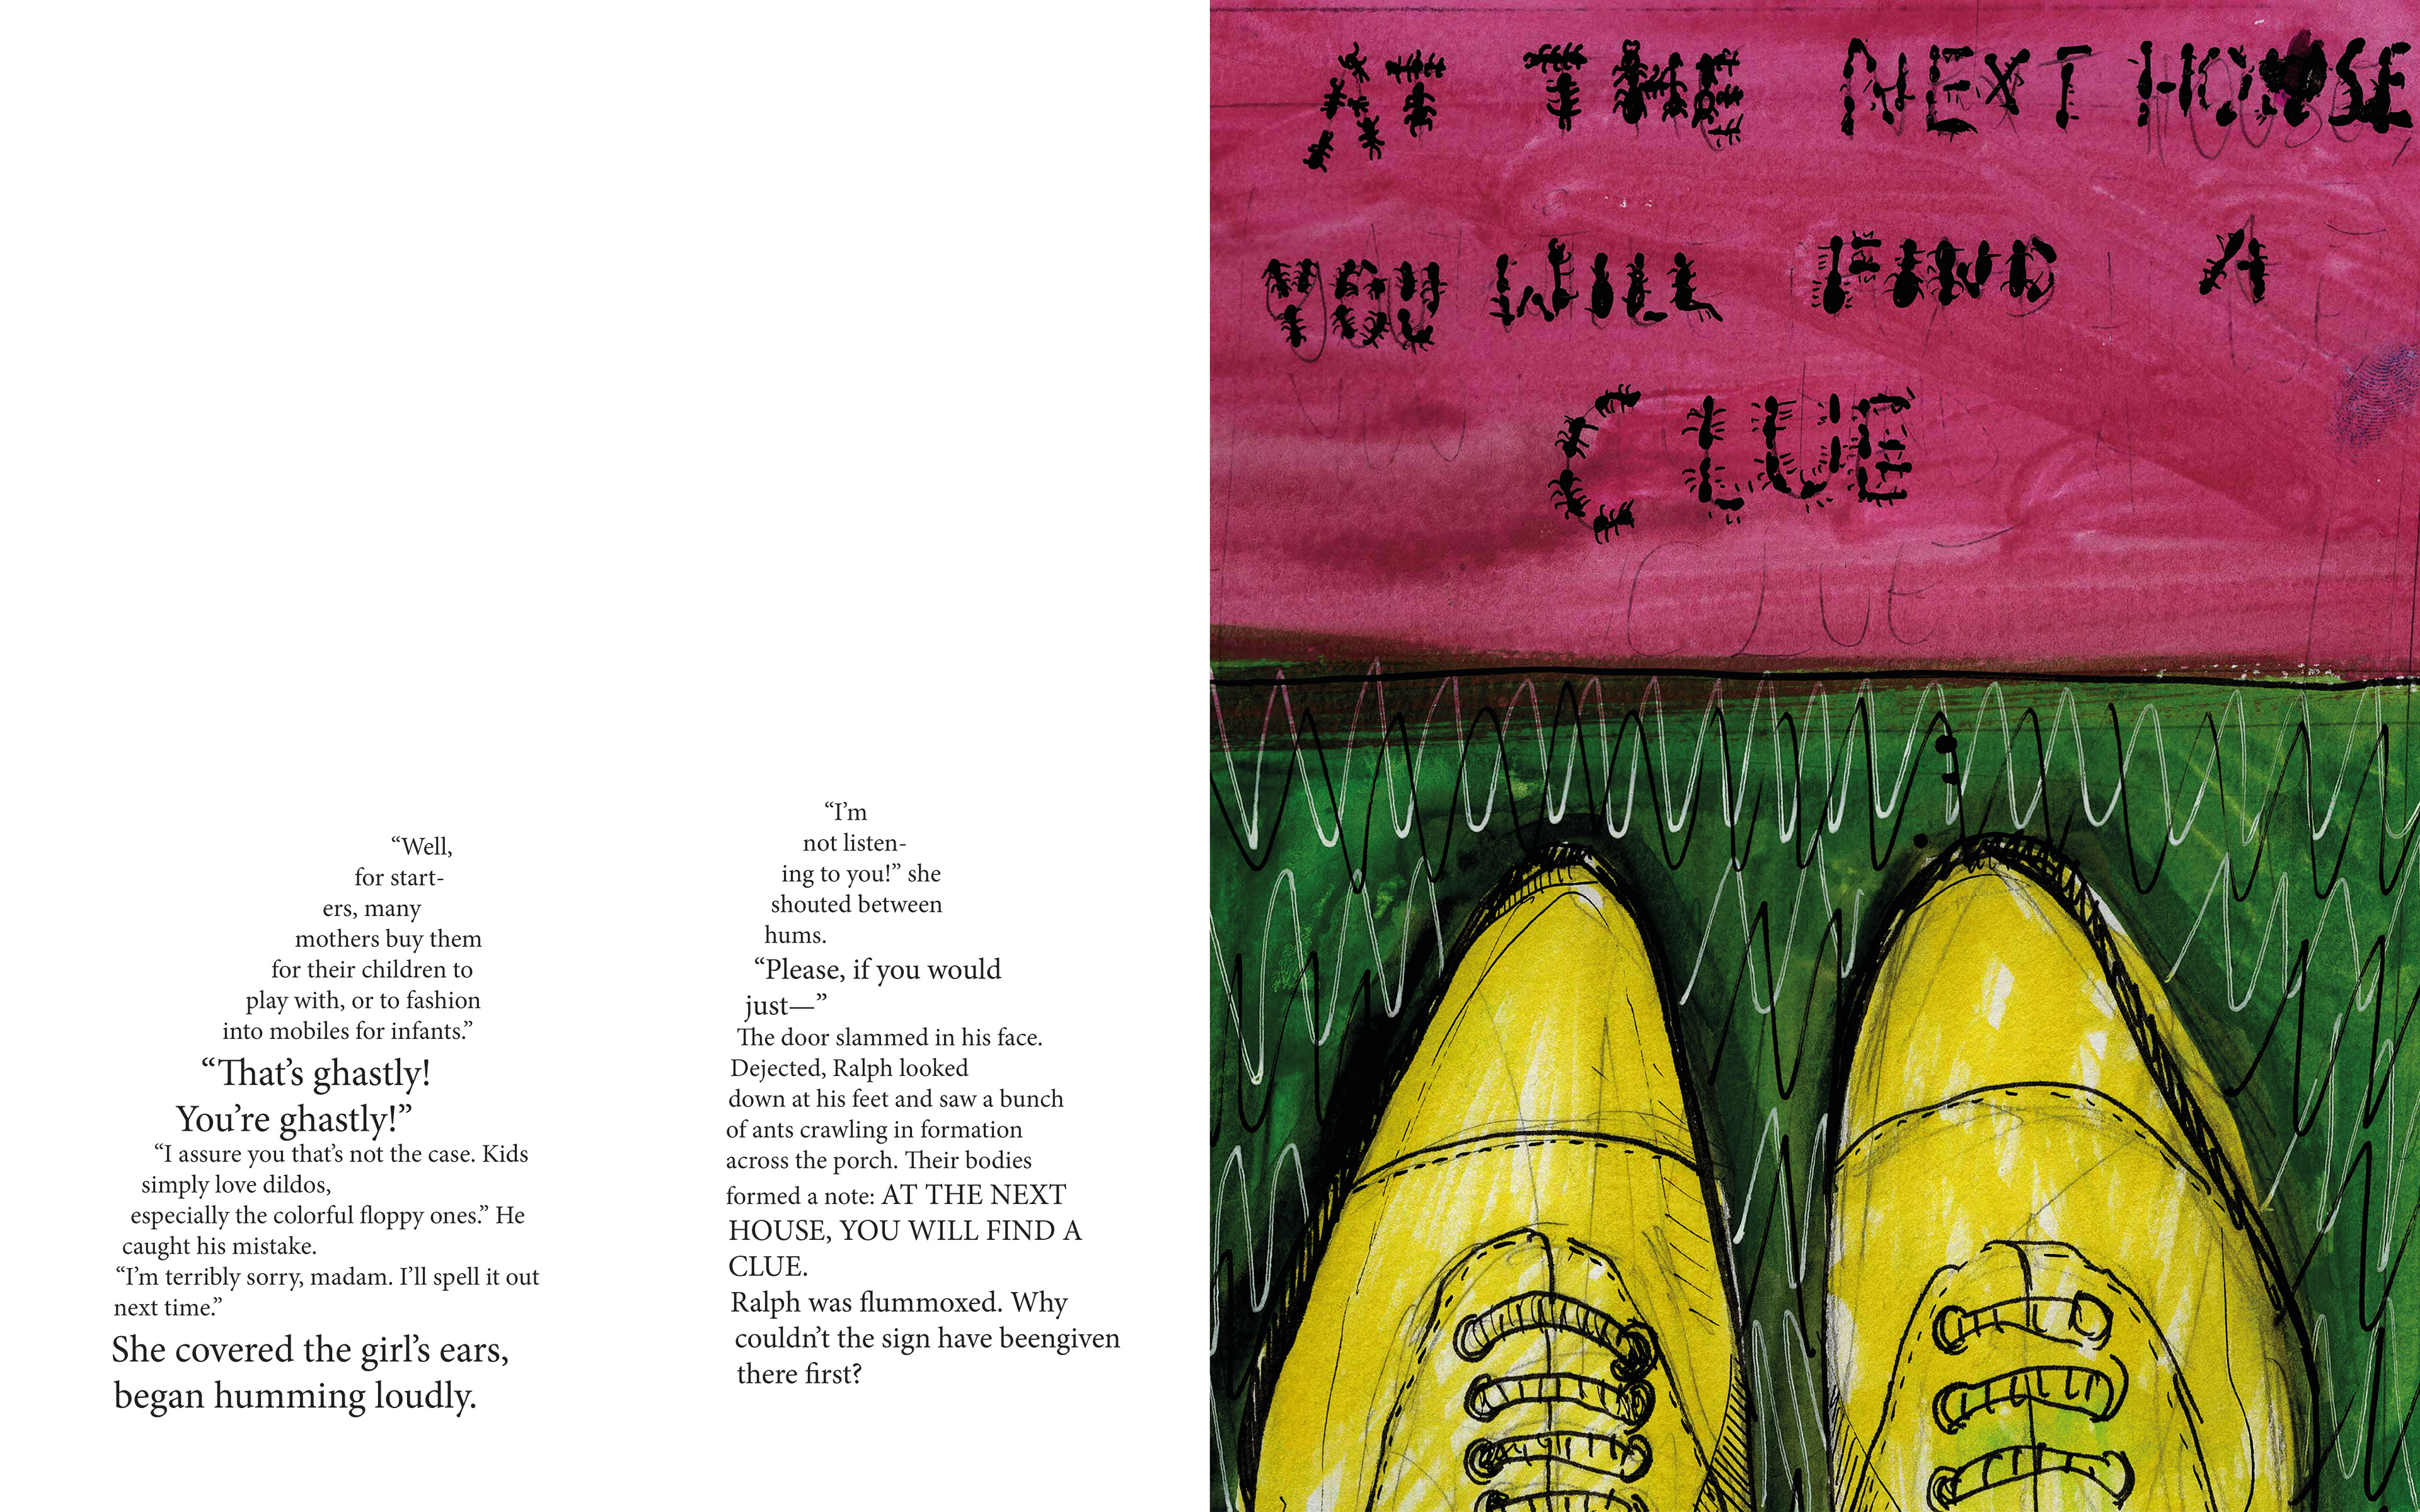 “Well,
for start-
ers, many
mothers buy them
for their children to
play with, or to fashion
into mobiles for infants.”
“That’s ghastly!
You’re ghastly!”
“I assure you that’s not the case. Kids
simply love dildos,
especially the colorful floppy ones.” He
caught his mistake.
“I’m terribly sorry, madam. I’ll spell it out
next time.”
She covered the girl’s ears,
began humming loudly.
“I’m
not listen-
ing to you!” she
shouted between
hums.
“Please, if you would
just—”
The door slammed in his face.
Dejected, Ralph looked
down at his feet and saw a bunch
of ants crawling in formation
across the porch. Their bodies
formed a note: AT THE NEXT
HOUSE, YOU WILL FIND A
CLUE.
Ralph was flummoxed. Why
couldn’t the sign have beengiven
there first?
AT THE NEXT HOUSE
YOU WILL FIND A
CLUE
CLUE